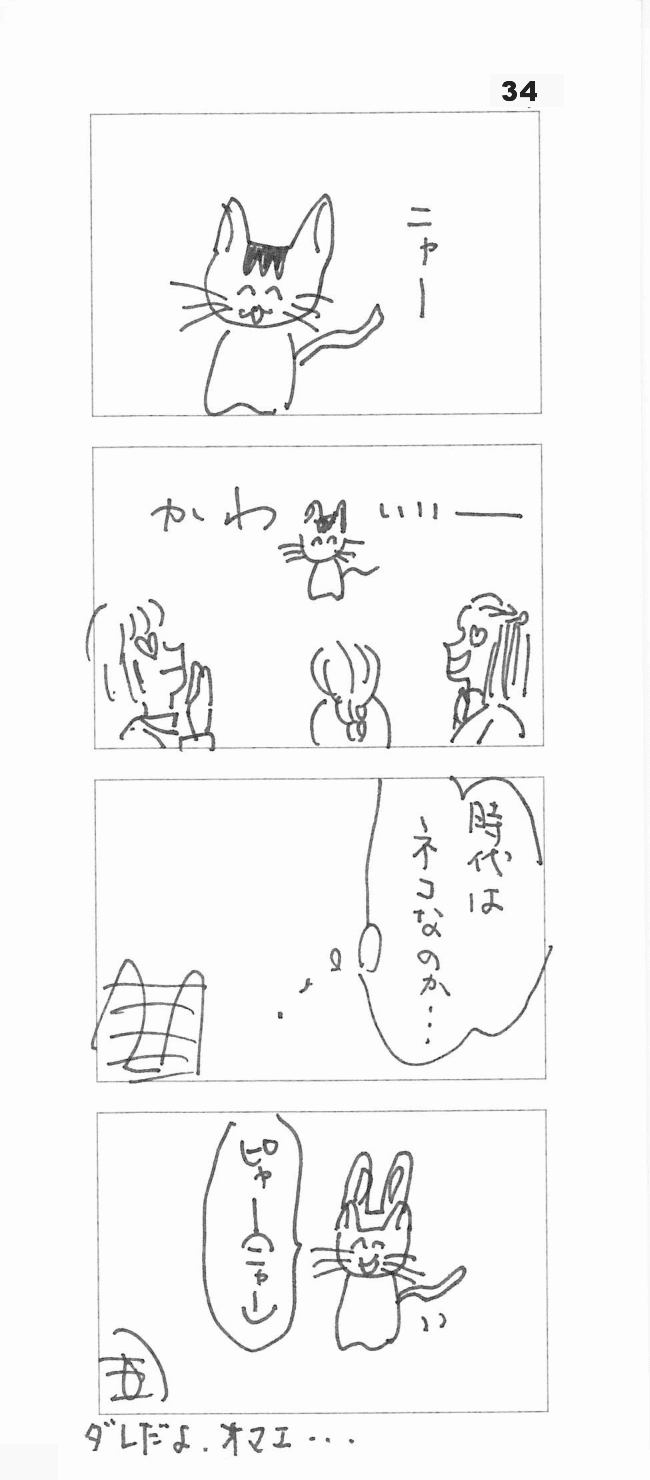 34
ニャー
かわいいー
時代は
ネコなのか…
ピャー(ニャー)
ダレだよ、オマエ・・・